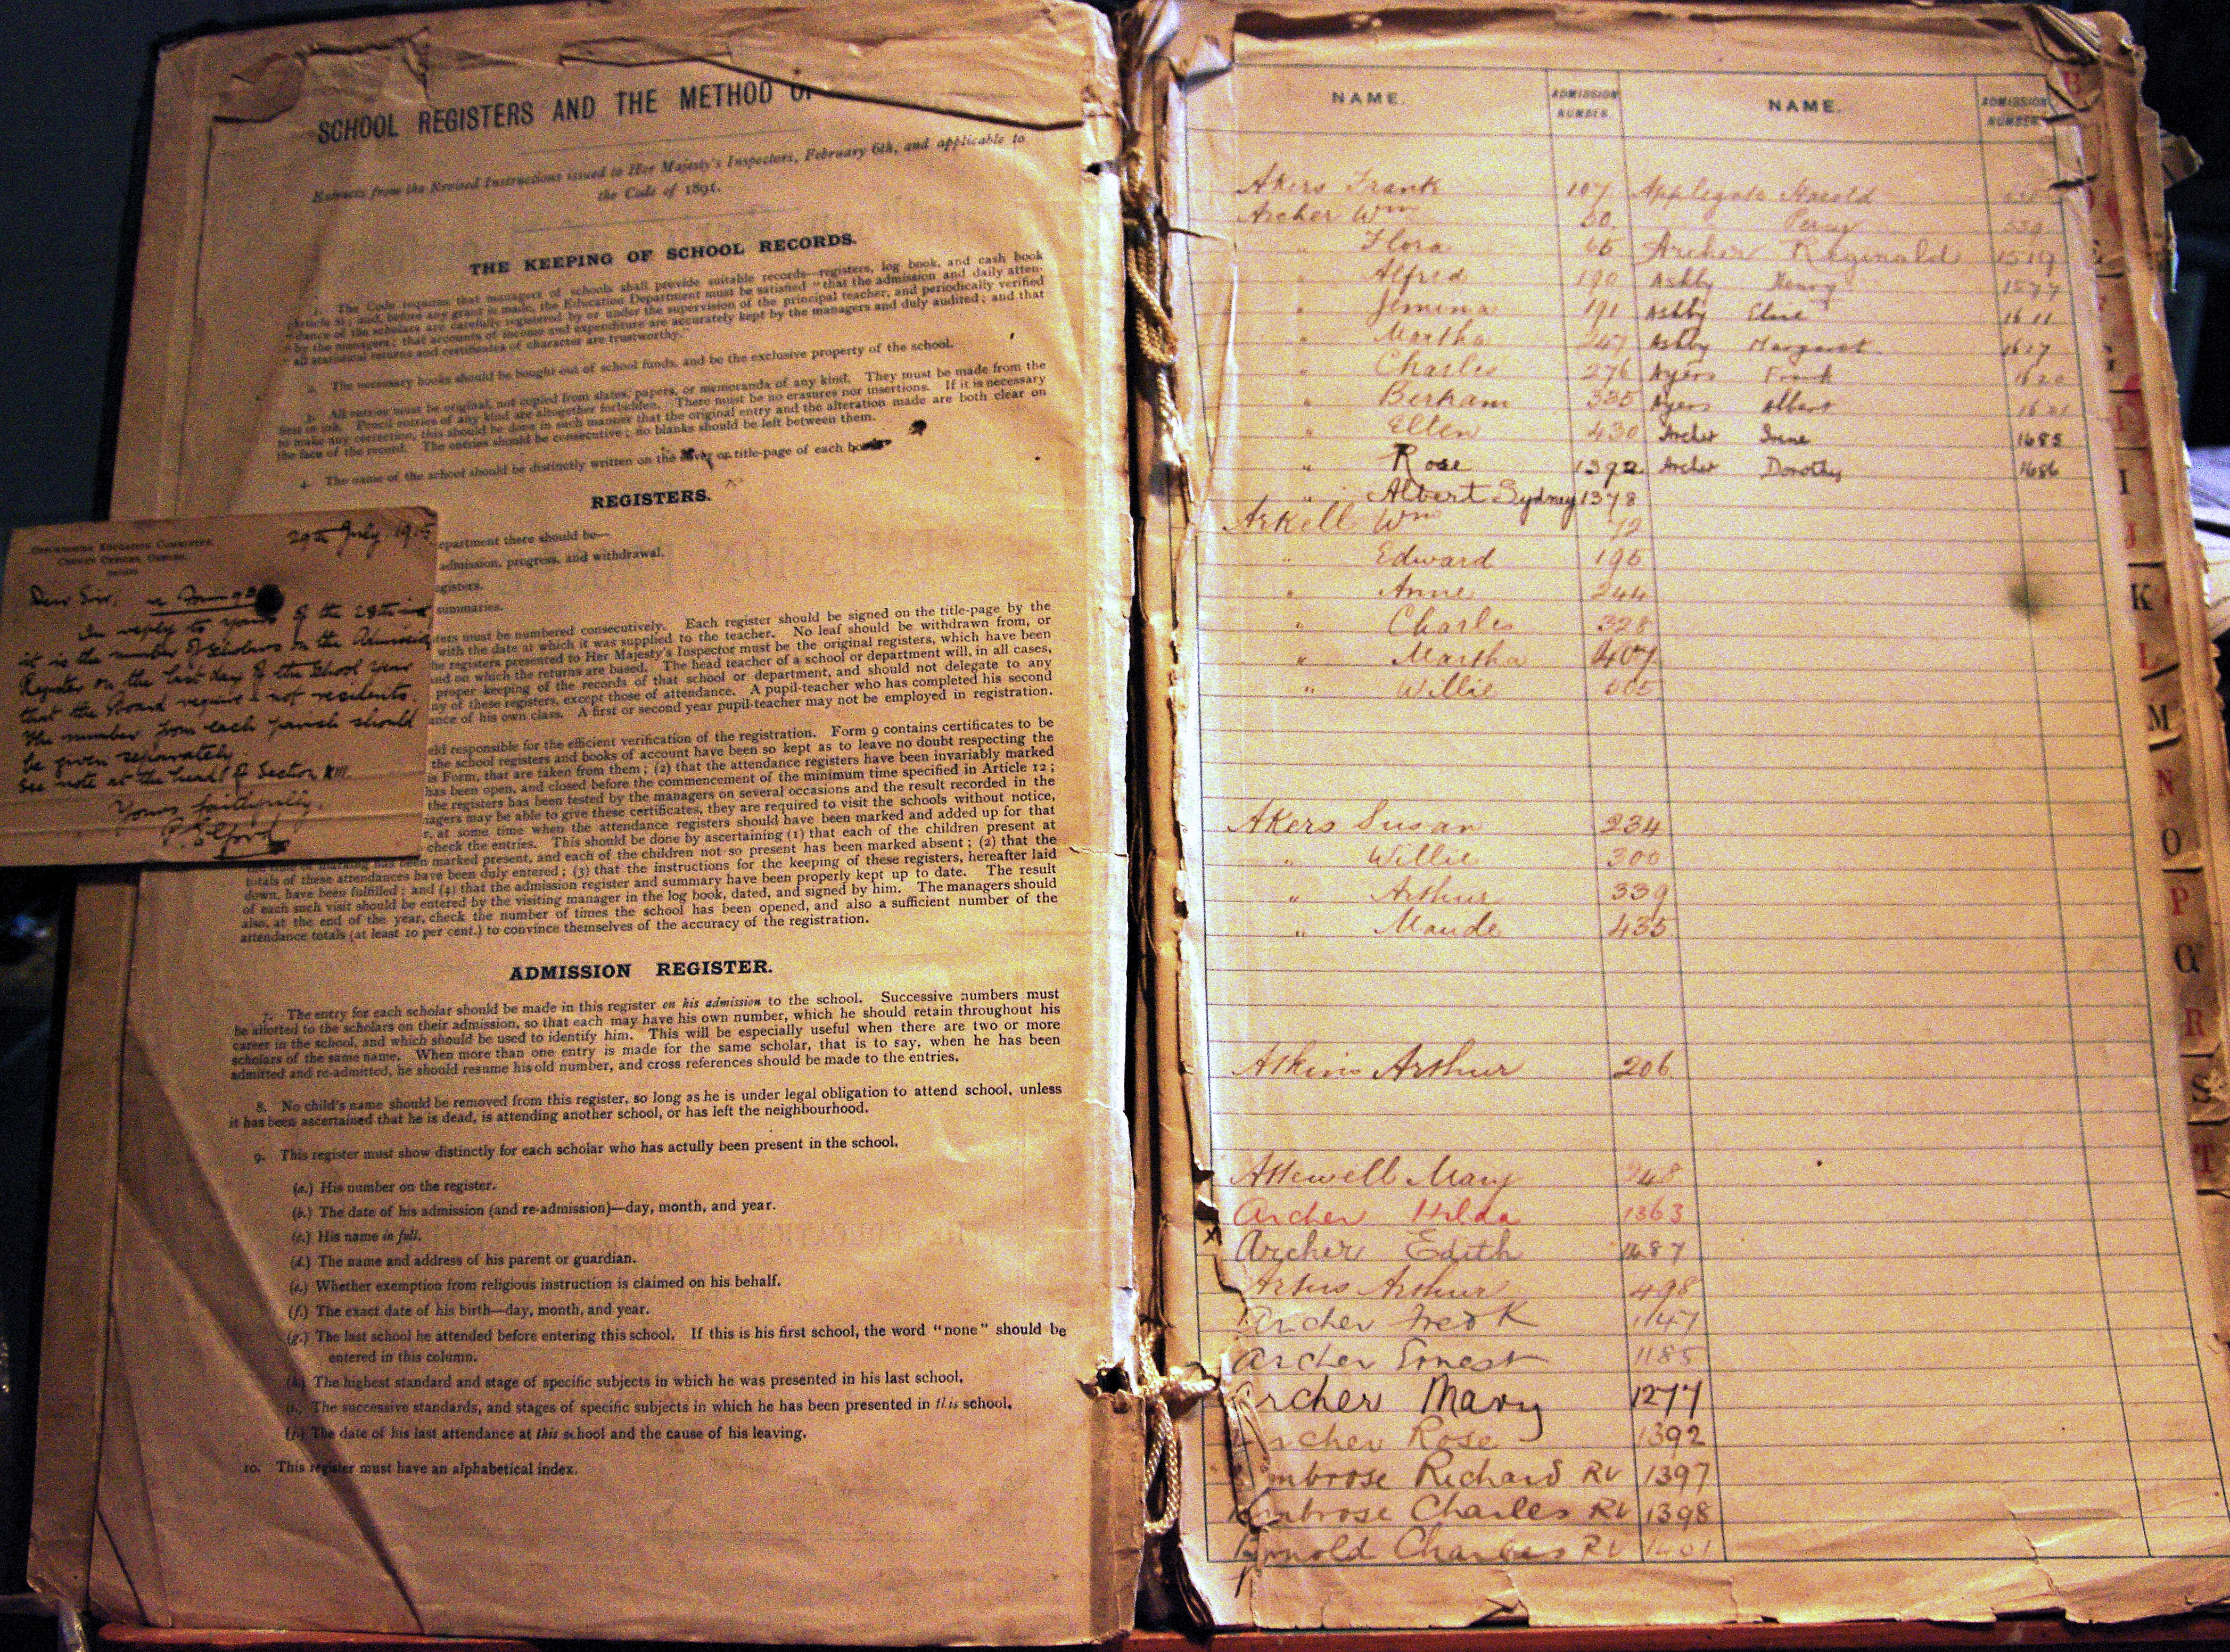 SCHOOL REGISTERS AND THE METHOD
Extracts from the Revised Instructions issued to Her Majesty's Inspectors, February 6th, and applicable to
the Code of 1891.
THE KEEPING OF SCHOOL RECORDS.
1. The Code requires that managers of schools shall provide suitable records—registers, log book, and cash book
and, before any grant is made, the Education Department must be satisfied "that the admission and daily atten-
"dance of the scholars are carefully registered by or under the supervision of the principal teacher, and periodically verified
"by the managers; that accounts of income and expenditure are accurately kept by the managers and duly audited; and that
"all statistical returns and certificates of character are trustworthy."
2. The necessary books should be bought out of school funds, and be the exclusive property of the school.
3. All entries must be original, not copied from slates, papers, or memoranda of any kind. They must be made from the
first in ink. Pencil entries of any kind are altogether forbidden. There must be no erasures nor insertions. If it is necessary
to make any correction, this should be done in such manner that the original entry and the alteration made are both clear on
the face of the record. The entries should be consecutive; no blanks should be left between them.
4. The name of the school should be distinctly written on the cover or title-page of each
REGISTERS.
epartment there should be—
admission, progress, and withdrawal.
egisters.
summaries.
ters must be numbered consecutively. Each register should be signed on the title-page by the
with the date at which it was supplied to the teacher. No leaf should be withdrawn from, or
he registers presented to Her Majesty's Inspector must be the original registers, which have been
and on which the returns are based. The head teacher of a school or department will, in all cases,
proper keeping of the records of that school or department, and should not delegate to any
ny of these registers, except those of attendance. A pupil-teacher who has completed his second
ance of his own class. A first or second year pupil-teacher may not be employed in registration.
eld responsible for the efficient verification of the registration. Form 9 contains certificates to be
the school registers and books of account have been so kept as to leave no doubt respecting the
is Form, that are taken from them; (2) that the attendance registers have been invariably marked
has been open, and closed before the commencement of the minimum time specified in Article 12;
the registers has been tested by the managers on several occasions and the result recorded in the
nagers may be able to give these certificates, they are required to visit the schools without notice,
r, at some time when the attendance registers should have been marked and added up for that
check the entries. This should be done by ascertaining (1) that each of the children present at
marking has been marked present, and each of the children not so present has been marked absent; (2) that the
totals of these attendances have been duly entered; (3) that the instructions for the keeping of these registers, hereafter laid
down, have been fulfilled; and (4) that the admission register and summary have been properly kept up to date. The result
of each such visit should be entered by the visiting manager in the log book, dated, and signed by him. The managers should
also, at the end of the year, check the number of times the school has been opened, and also a sufficient number of the
attendance totals (at least 10 per cent.) to convince themselves of the accuracy of the registration.
ADMISSION REGISTER.
7. The entry for each scholar should be made in this register on his admission to the school. Successive numbers must
be allotted to the scholars on their admission, so that each may have his own number, which he should retain throughout his
career in the school, and which should be used to identify him. This will be especially useful when there are two or more
scholars of the same name. When more than one entry is made for the same scholar, that is to say, when he has been
admitted and re-admitted, he should resume his old number, and cross references should be made to the entries.
8. No child's name should be removed from this register, so long as he is under legal obligation to attend school, unless
it has been ascertained that he is dead, is attending another school, or has left the neighbourhood.
9. This register must show distinctly for each scholar who has actully been present in the school.
(a.) His number on the register.
(b.) The date of his admission (and re-admission)—day, month, and year.
(c.) His name in full.
(d.) The name and address of his parent or guardian.
(e.) Whether exemption from religious instruction is claimed on his behalf.
(f.) The exact date of his birth—day, month, and year.
(g.) The last school he attended before entering this school. If this is his first school, the word "none" should be
entered in this column.
(h.) The highest standard and stage of specific subjects in which he was presented in his last school.
(i.) The successive standards, and stages of specific subjects in which he has been presented in this school.
(j.) The date of his last attendance at this school and the cause of his leaving.
10. This register must have an alphabetical index.
29th July 1915
Dear Sir,
In reply to yours of the 28th inst
it is the number of scholars on the Admission
Register on the last day of the School year
that the Board require & not residents.
The number from each parish should
be given separately.
See note at the head of Section
Yours faithfully,
NAME. ADMISSION NUMBER. NAME. ADMISSION NUMBER.
Akers Frank 107 Applegate Harold
Archer Wm 50 Percy
" Flora 65 Archer Reginald 1519
" Alfred 190 Ashby Henry 1577
" Jemima 191 Ashby Elsie 1611
" Martha 247 Ashby Margaret 1627
" Charles 276 Ayers Frank
" Bertram 335 Ayers Albert
" Ellen 430 Archer Irene 1685
" Rose 1392 Archer Dorothy 1686
" Albert Sydney 1378
Arkell Wm 72
" Edward 195
" Anne 244
" Charles 328
" Martha 407
" Willie 505
Akers Susan 234
" Willie 300
" Arthur 339
" Maude 435
Atkins Arthur 206
Attewell Mary 248
Archer Hilda 1363
X Archer Edith 1687
Artus Arthur 498
Archer Fredk 1147
Archer Ernest 1185
Archer Mary 1277
Archer Rose 1392
Ambrose Richard RV 1397
Ambrose Charles RV 1398
Arnold Charles RV 1401
I
J
K
L
M
N
O
P
Q
R
S
T